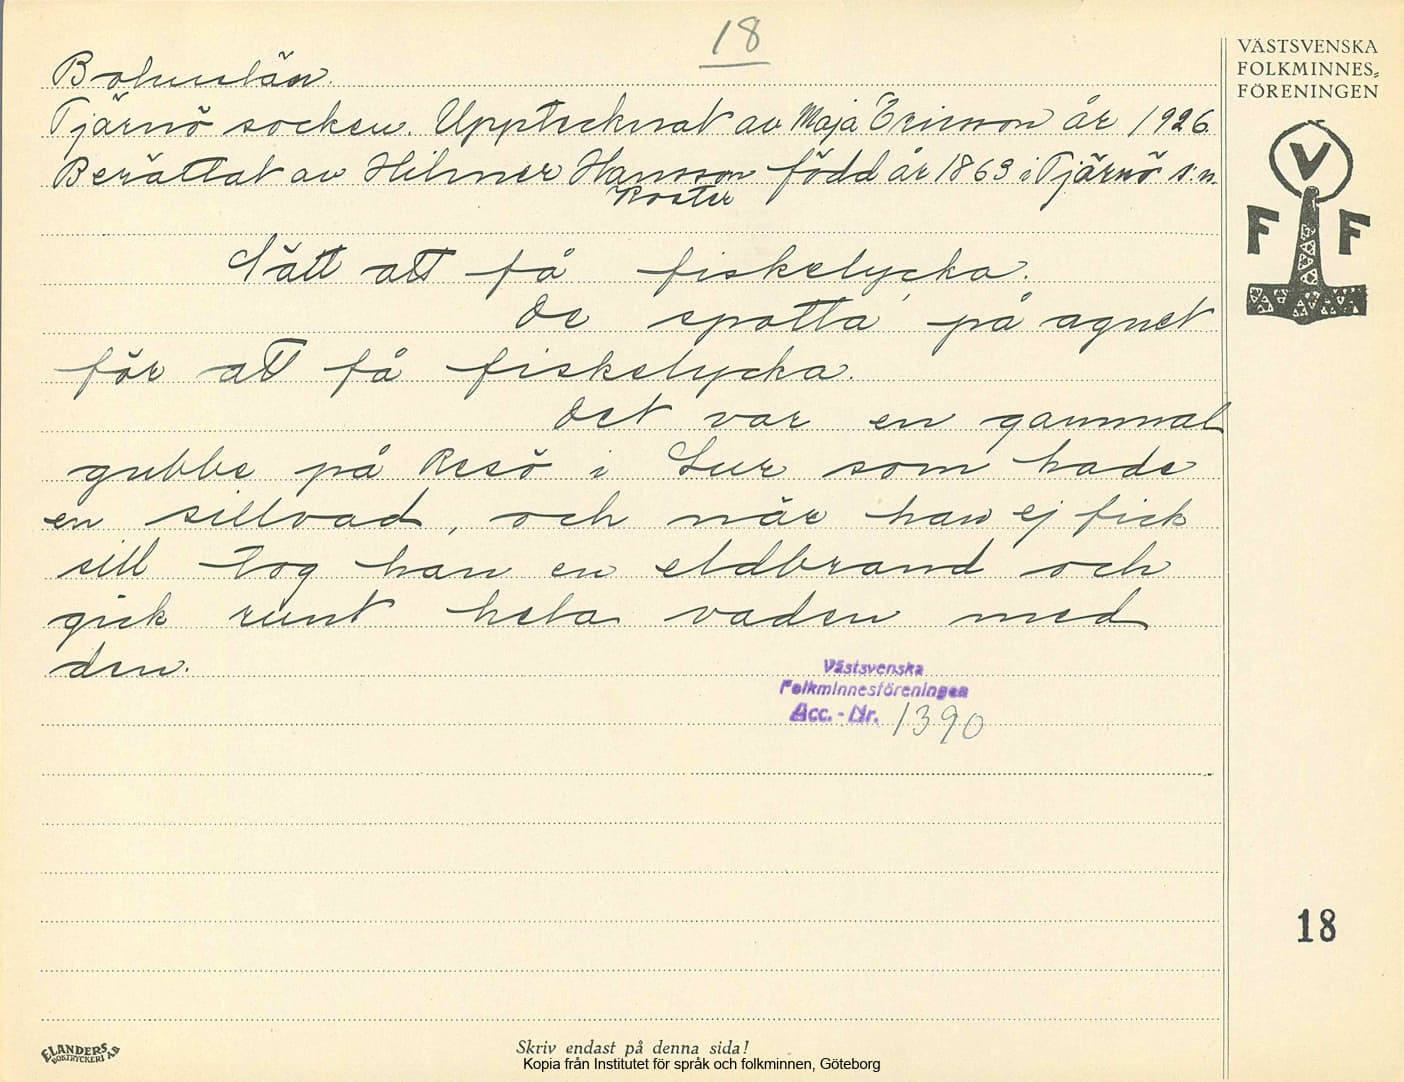 18
VÄSTSVENSKA
FOLKMINNES=
FÖRENINGEN
V
F F
Bohuslän.
Tjärnö socken. Upptecknat av Maja Ericson år 1926.
Berättat av Hilmer Hansson född år 1863 i Tjärnö s:n.
Koster
Sätt att få fiskelycka.
De spotta på agnet
för att få fiskelycka.
Det var en gammal
gubbe på Resö i Lur som hade
en sillvad, och när han ej fick
sill tog han en eldbrand och
gick runt hela vaden med
den.
Västsvenska
Folkminnesföreningen
Acc. - Nr. 1390
18
ELANDERS
BOKTRYCKERI A.B
Skriv endast på denna sida!
Kopia från Institutet för språk och folkminnen, Göteborg